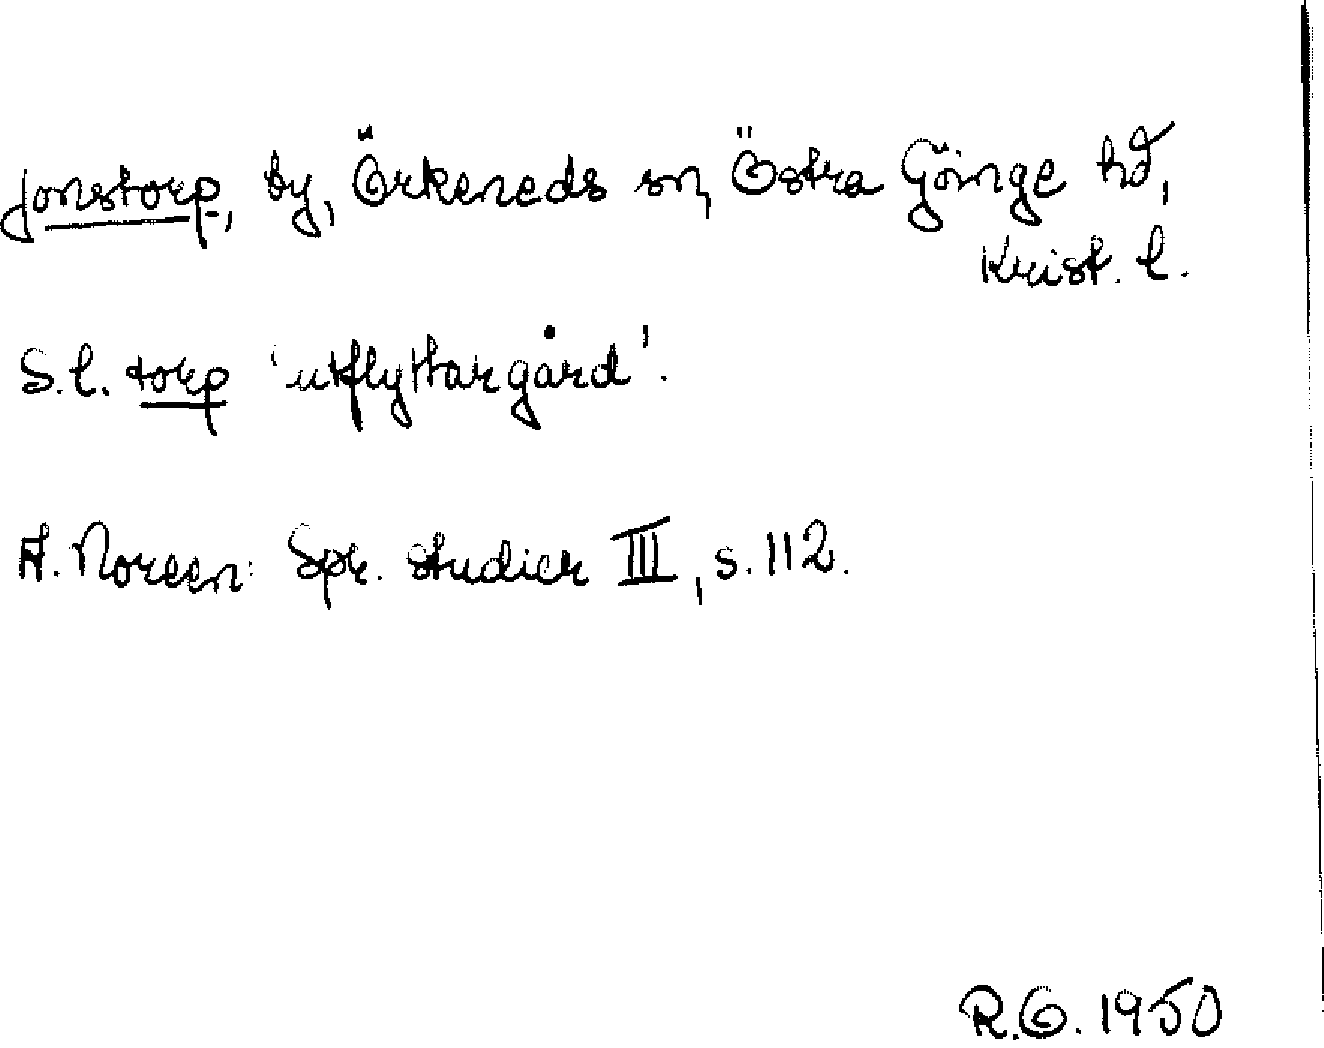 Jonstorp, by, Örkeneds sn, Östra Göinge hd,
Krist. l.
S.l. torp 'utflyttargård'.
A. Noreen: Spr. studier III, s. 112.
R.G. 1950